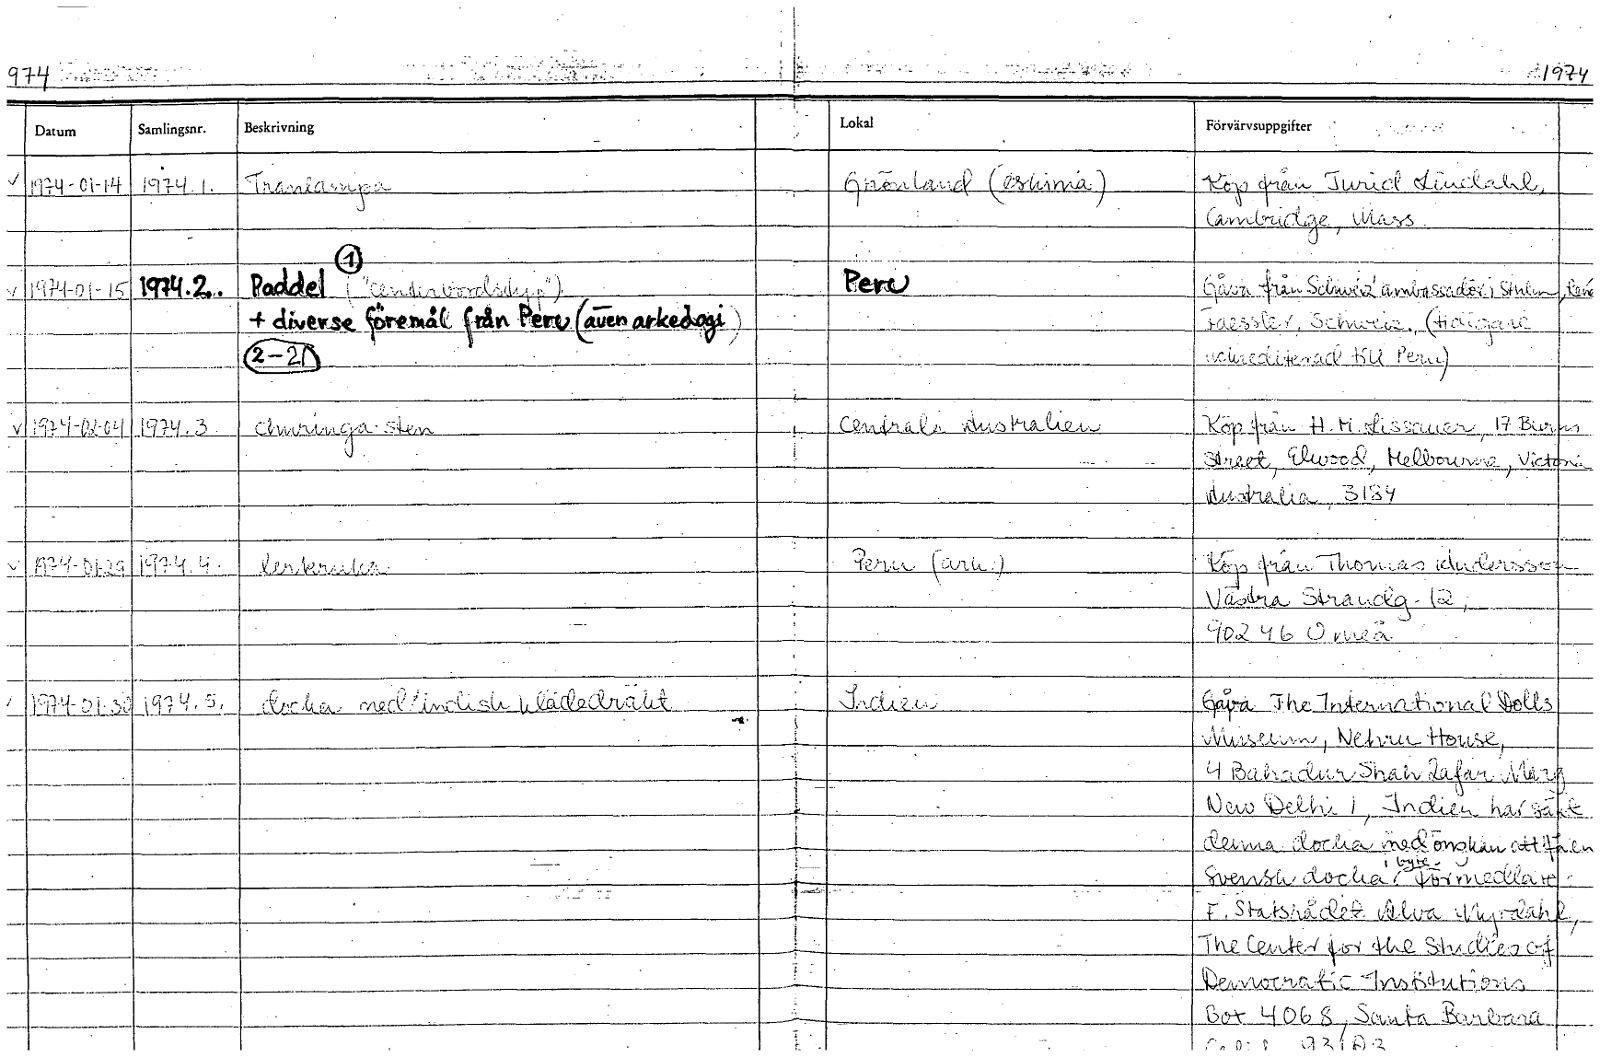 974
1974
Datum Samlingsnr. Beskrivning Lokal Förvärvsuppgifter
1974-01-14 1974.1. Tranlampa Grönland (eskimå) Köp från Turid Lindahl,
Cambridge, Mass.
1
1974-01-15 1974.2. Paddel ("centerbordstyp") Peru Gåva från Schweiz' ambassadör i Sthlm, René
+ diverse föremål från Peru (även arkeologi) Faessler, Schweiz. (tidigare
2-21 ackrediterad till Peru)
v 1974-02-04 1974.3 churinga-sten Centrala Australien Köp från H.M. Lissauer, 17 Burns
Street, Elwood, Melbourne, Victoria
Australia, 3184
v 1974-01-29 1974.4. lerkruka Peru (ark.) Köp från Thomas Andersson
Västra Strandg. 12,
902 46 Umeå
1974-01-30 1974.5. docka med indisk klädedräkt Indien Gåva The International Dolls
Museum, Nehru House,
4 Bahadur Shah Zafar Marg
New Delhi 1, Indien har sänt
denna docka med önskan att få en
i byte
svensk docka. Förmedlare:
F. Statsrådet Alva Myrdahl,
The Center for the Studies of
Democratic Institutions
Box 4068, Santa Barbara